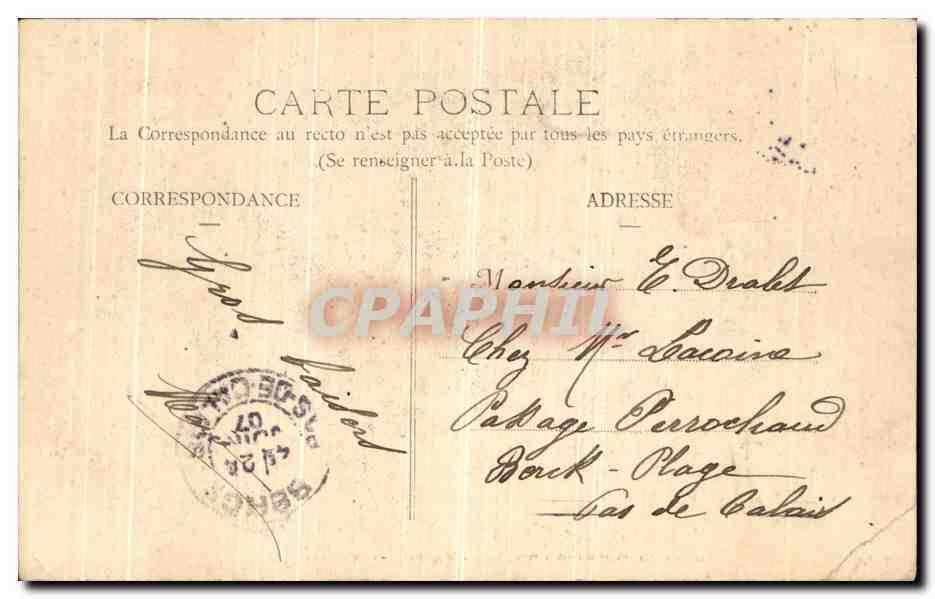 CARTE POSTALE
La Correspondance au recto n'est pas acceptée par tous les pays étrangers.
(Se renseigner à la Poste)
CORRESPONDANCE
ADRESSE
Gros baisers
Monsieur E. Dralet
Chez Mr Lacaine
Passage Perrochaud
Berck-Plage
Pas de Calais
PAS-DE-CALAIS
JUIN
07
CPAPHIL